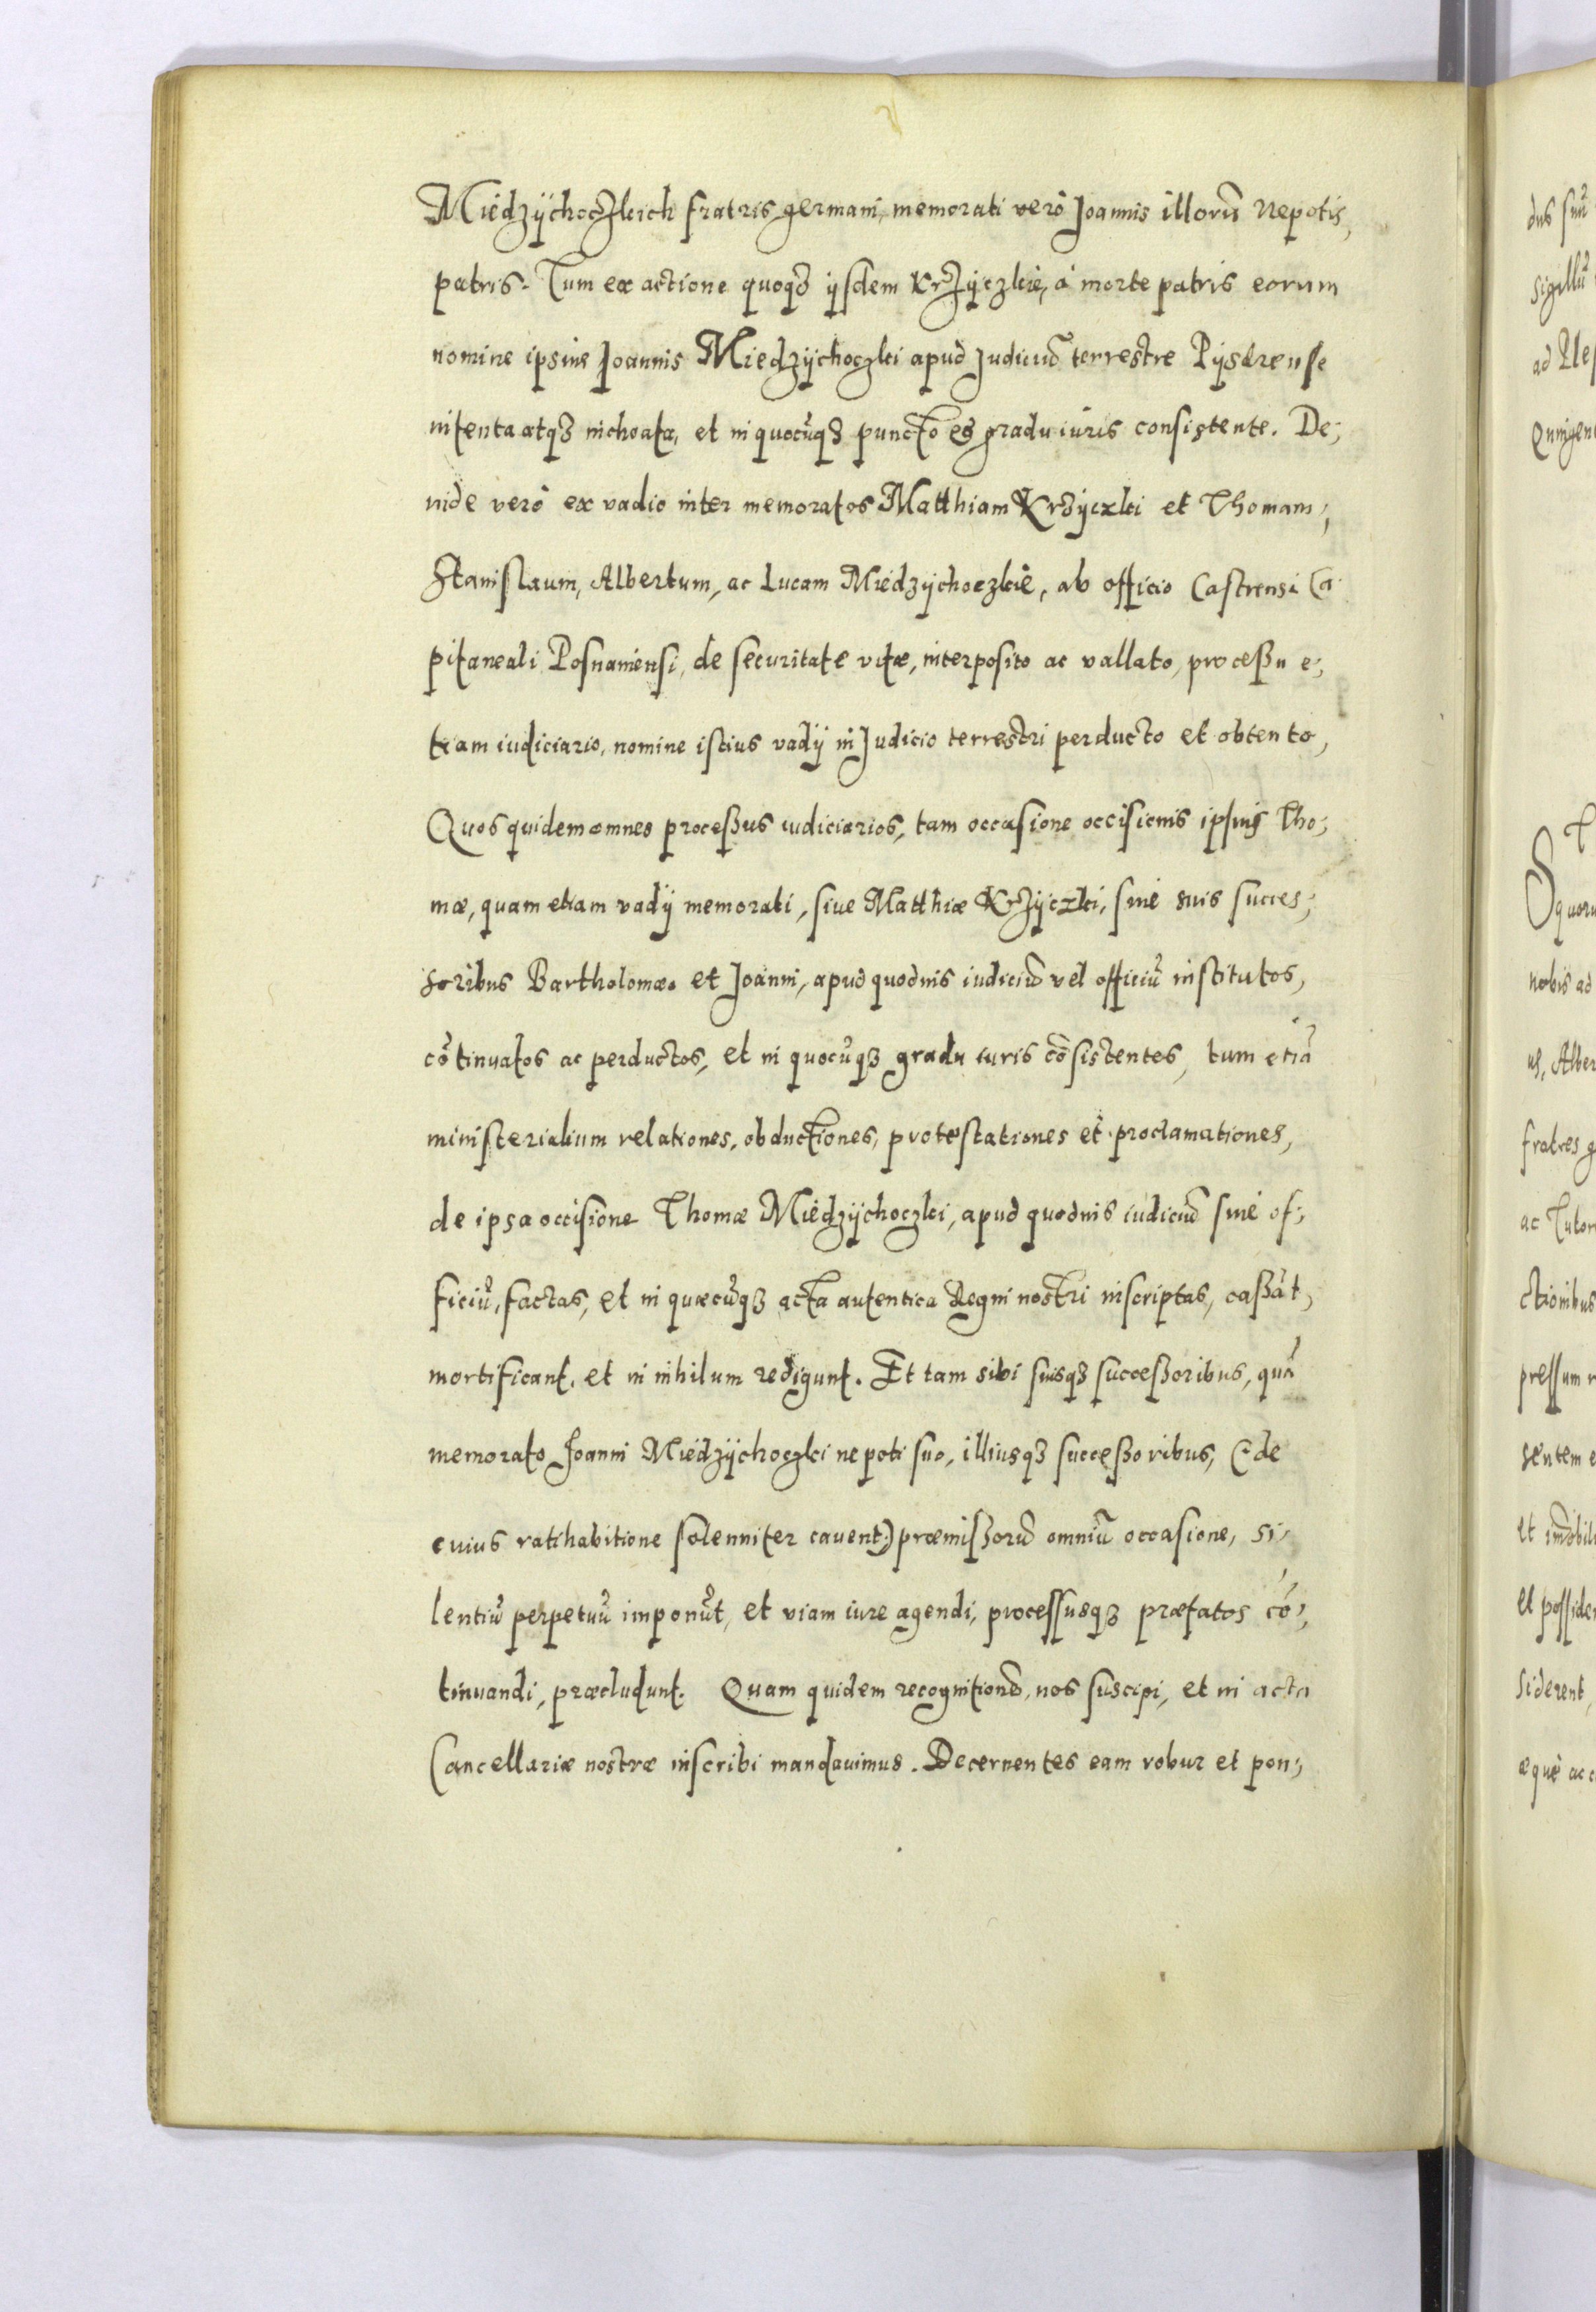 Miedzÿchoczkich fratris germani, memorati verò Joannis illorũ Nepotis,
patris. Tum ex actione quoqꝫ ijsdem Krzÿczkie, à morte patris eorum
nomine ipsius Joannis Miedzÿchoczki apud Judiciũ terrestre Pÿsdrense
intenta atqꝫ inchoata, et in quocũqꝫ puncto eͦ gradu iuris consistente. De;
inde verò ex vadio inter memoratos Matthiam Krzÿczki et Thomam;
Stanislaum, Albertum, ac Lucam Miedzÿchoczkie, ab officio Castrensi Ca
pitaneali Posnaniensi, de securitate vitæ, interposito ac vallato, processu e;
tiam iudiciario, nomine istius vadÿ in Judicio terrestri perducto et obtento,
Quos quidem omnes processus iudiciarios, tam occasione occisionis ipsius Tho;
mæ, quam etiam vadÿ memorati, siue Matthiæ Krzÿczki, siue suis succes;
soribus Bartholomæo et Joanni, apud quoduis iudiciũ vel officiũ institutos,
cõtinuatos ac perductos, et in quocũqꝫ gradu iuris cõsistentes, tum etiã
ministerialium relationes, obductiones, protestationes et proclamationes,
de ipsa occisione Thomæ Miedzÿchoczki, apud quoduis iudiciũ siue of;
ficiũ, factas, et in quæcũqꝫ acta autentica Regni nostri inscriptas, cassãt,
mortificant, et in nihilum redigunt. Et tam sibi suisqꝫ successoribus, quã
memorato Joanni Miedzÿchoczki nepoti suo, illiusqꝫ successoribus, (de
cuius ratihabitione solenniter cauent) præmissorũ omniũ occasione, si;
lentiũ perpetuũ imponũt, et viam iure agendi, processusqꝫ præfatos cõ;
tinuandi, præcludunt. Quam quidem recognitionẽ, nos suscipi, et in acta
Cancellariæ nostræ inscribi mandauimus. Decernentes eam robur et pon;
dus suũ
sigillũ
ad
T
Squoru
nobis ad
us, Alber
fratres g
ac Tutor
ctionibus
pressum
sentem e
et immobil
et posside
siderent,
æquè ac